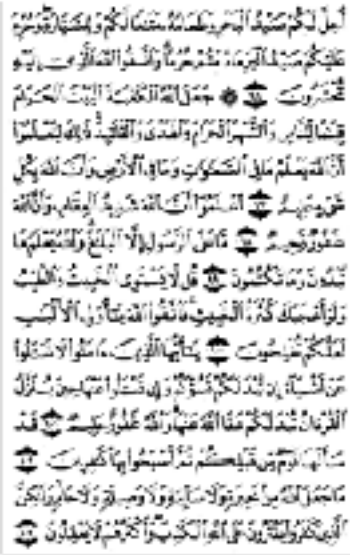 أُحِلَّ لَكُمْ صَيْدُ ٱلْبَحْرِ وَطَعَامُهُۥ مَتَـٰعًا لَّكُمْ وَلِلسَّيَّارَةِ ۖ وَحُرِّمَ
عَلَيْكُمْ صَيْدُ ٱلْبَرِّ مَا دُمْتُمْ حُرُمًا ۗ وَٱتَّقُوا۟ ٱللَّهَ ٱلَّذِىٓ إِلَيْهِ
تُحْشَرُونَ ۝٩٦ ۞ جَعَلَ ٱللَّهُ ٱلْكَعْبَةَ ٱلْبَيْتَ ٱلْحَرَامَ
قِيَـٰمًا لِّلنَّاسِ وَٱلشَّهْرَ ٱلْحَرَامَ وَٱلْهَدْىَ وَٱلْقَلَـٰٓئِدَ ۚ ذَٰلِكَ لِتَعْلَمُوٓا۟
أَنَّ ٱللَّهَ يَعْلَمُ مَا فِى ٱلسَّمَـٰوَٰتِ وَمَا فِى ٱلْأَرْضِ وَأَنَّ ٱللَّهَ بِكُلِّ
شَىْءٍ عَلِيمٌ ۝٩٧ ٱعْلَمُوٓا۟ أَنَّ ٱللَّهَ شَدِيدُ ٱلْعِقَابِ وَأَنَّ ٱللَّهَ
غَفُورٌ رَّحِيمٌ ۝٩٨ مَّا عَلَى ٱلرَّسُولِ إِلَّا ٱلْبَلَـٰغُ ۗ وَٱللَّهُ يَعْلَمُ مَا
تُبْدُونَ وَمَا تَكْتُمُونَ ۝٩٩ قُل لَّا يَسْتَوِى ٱلْخَبِيثُ وَٱلطَّيِّبُ
وَلَوْ أَعْجَبَكَ كَثْرَةُ ٱلْخَبِيثِ ۚ فَٱتَّقُوا۟ ٱللَّهَ يَـٰٓأُو۟لِى ٱلْأَلْبَـٰبِ
لَعَلَّكُمْ تُفْلِحُونَ ۝١٠٠ يَـٰٓأَيُّهَا ٱلَّذِينَ ءَامَنُوا۟ لَا تَسْـَٔلُوا۟
عَنْ أَشْيَآءَ إِن تُبْدَ لَكُمْ تَسُؤْكُمْ وَإِن تَسْـَٔلُوا۟ عَنْهَا حِينَ يُنَزَّلُ
ٱلْقُرْءَانُ تُبْدَ لَكُمْ عَفَا ٱللَّهُ عَنْهَا ۗ وَٱللَّهُ غَفُورٌ حَلِيمٌ ۝١٠١ قَدْ
سَأَلَهَا قَوْمٌ مِّن قَبْلِكُمْ ثُمَّ أَصْبَحُوا۟ بِهَا كَـٰفِرِينَ ۝١٠٢
مَا جَعَلَ ٱللَّهُ مِنۢ بَحِيرَةٍ وَلَا سَآئِبَةٍ وَلَا وَصِيلَةٍ وَلَا حَامٍ ۙ وَلَـٰكِنَّ
ٱلَّذِينَ كَفَرُوا۟ يَفْتَرُونَ عَلَى ٱللَّهِ ٱلْكَذِبَ ۖ وَأَكْثَرُهُمْ لَا يَعْقِلُونَ ۝١٠٣